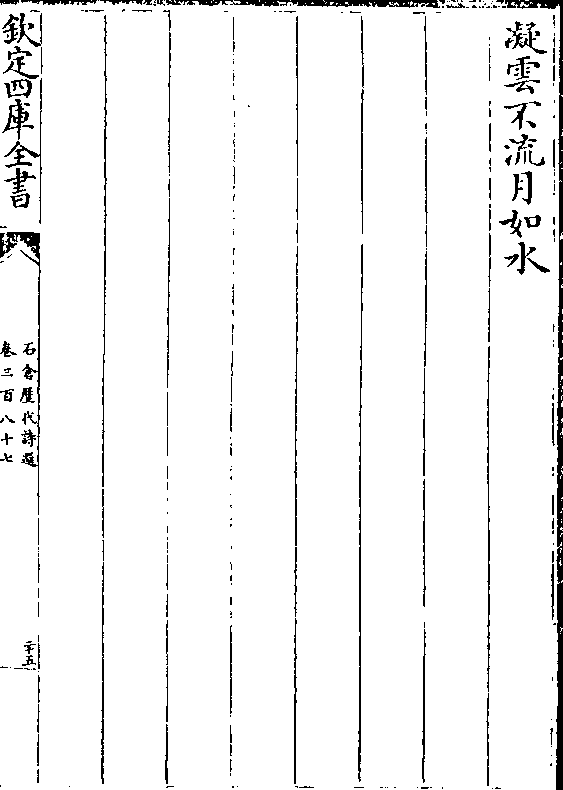 凝雲不流月如水
欽定四庫全書
石倉歷代詩選
卷三百八十七
二十五